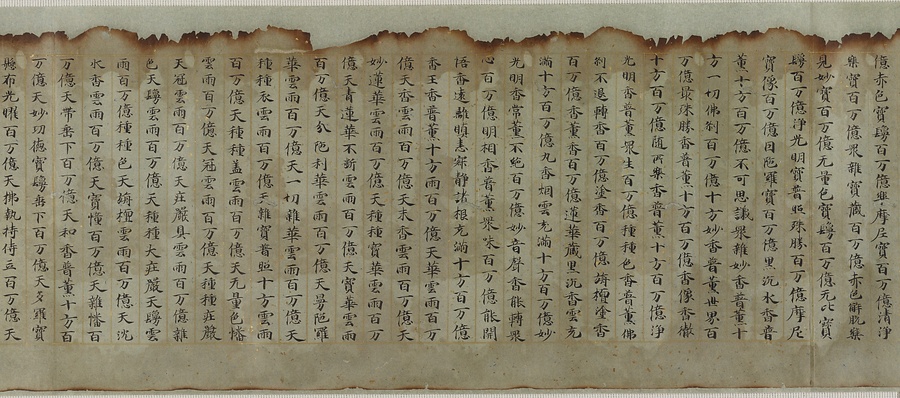 億赤色寶鬘百万億興摩尼寶百万億清淨
樂寶百万億眾雜寶藏百万億赤色解脫樂
見妙寶百万億无量色寶鬘百万億无比寶
鬘百万億淨光明寶普照殊勝百万億摩尼
寶像百万億因陁羅寶百万億黑沉水香普
薰十方百万億不可思議眾雜妙香普薰十
方一切佛刹百万億十方妙香普薰世界百
万億最殊勝香普薰十方百万億香像香徹
十方百万億随所樂香普薰十方百万億淨
光明香普薰眾生百万億種種色香普薰佛
刹不退轉香百万億塗香百万億栴檀塗香
百万億香薰香百万億蓮華藏黑沉香雲充
滿十方百万億丸香烟雲充滿十方百万億妙
光明香常薰不絕百万億妙音聲香能轉眾
心百万億明相香普薰眾味百万億能開
悟香遠離瞋恚寂靜諸根充滿十方百万億
香王香普薰十方雨百万億天華雲雨百万
億天香雲雨百万億天末香雲雨百万億天
妙蓮華雲雨百万億天種種寶華雲雨百万
億天青蓮華不斷雲雨百万億天寶華雲雨
百万億天分陁利華雲雨百万億天曼陁羅
華雲雨百万億天一切雜華雲雨百万億天
種種衣雲雨百万億天雜寶普照十方雲雨
百万億天種種蓋雲雨百万億天无量色幡
雲雨百万億天冠雲雨百万億天種種莊嚴
天冠雲雨百万億天莊嚴具雲雨百万億雜
色天鬘雲雨百万億天種種大莊嚴天鬘雲
雨百万億種種色天栴檀雲雨百万億天沉
水香雲雨百万億天寶幢百万億天雜幡百
万億天帶垂下百万億天和香普薰十方百
万億天妙功德寶鬘垂下百万億天多羅寶
懸布光曜百万億天拂執持侍立百万億天